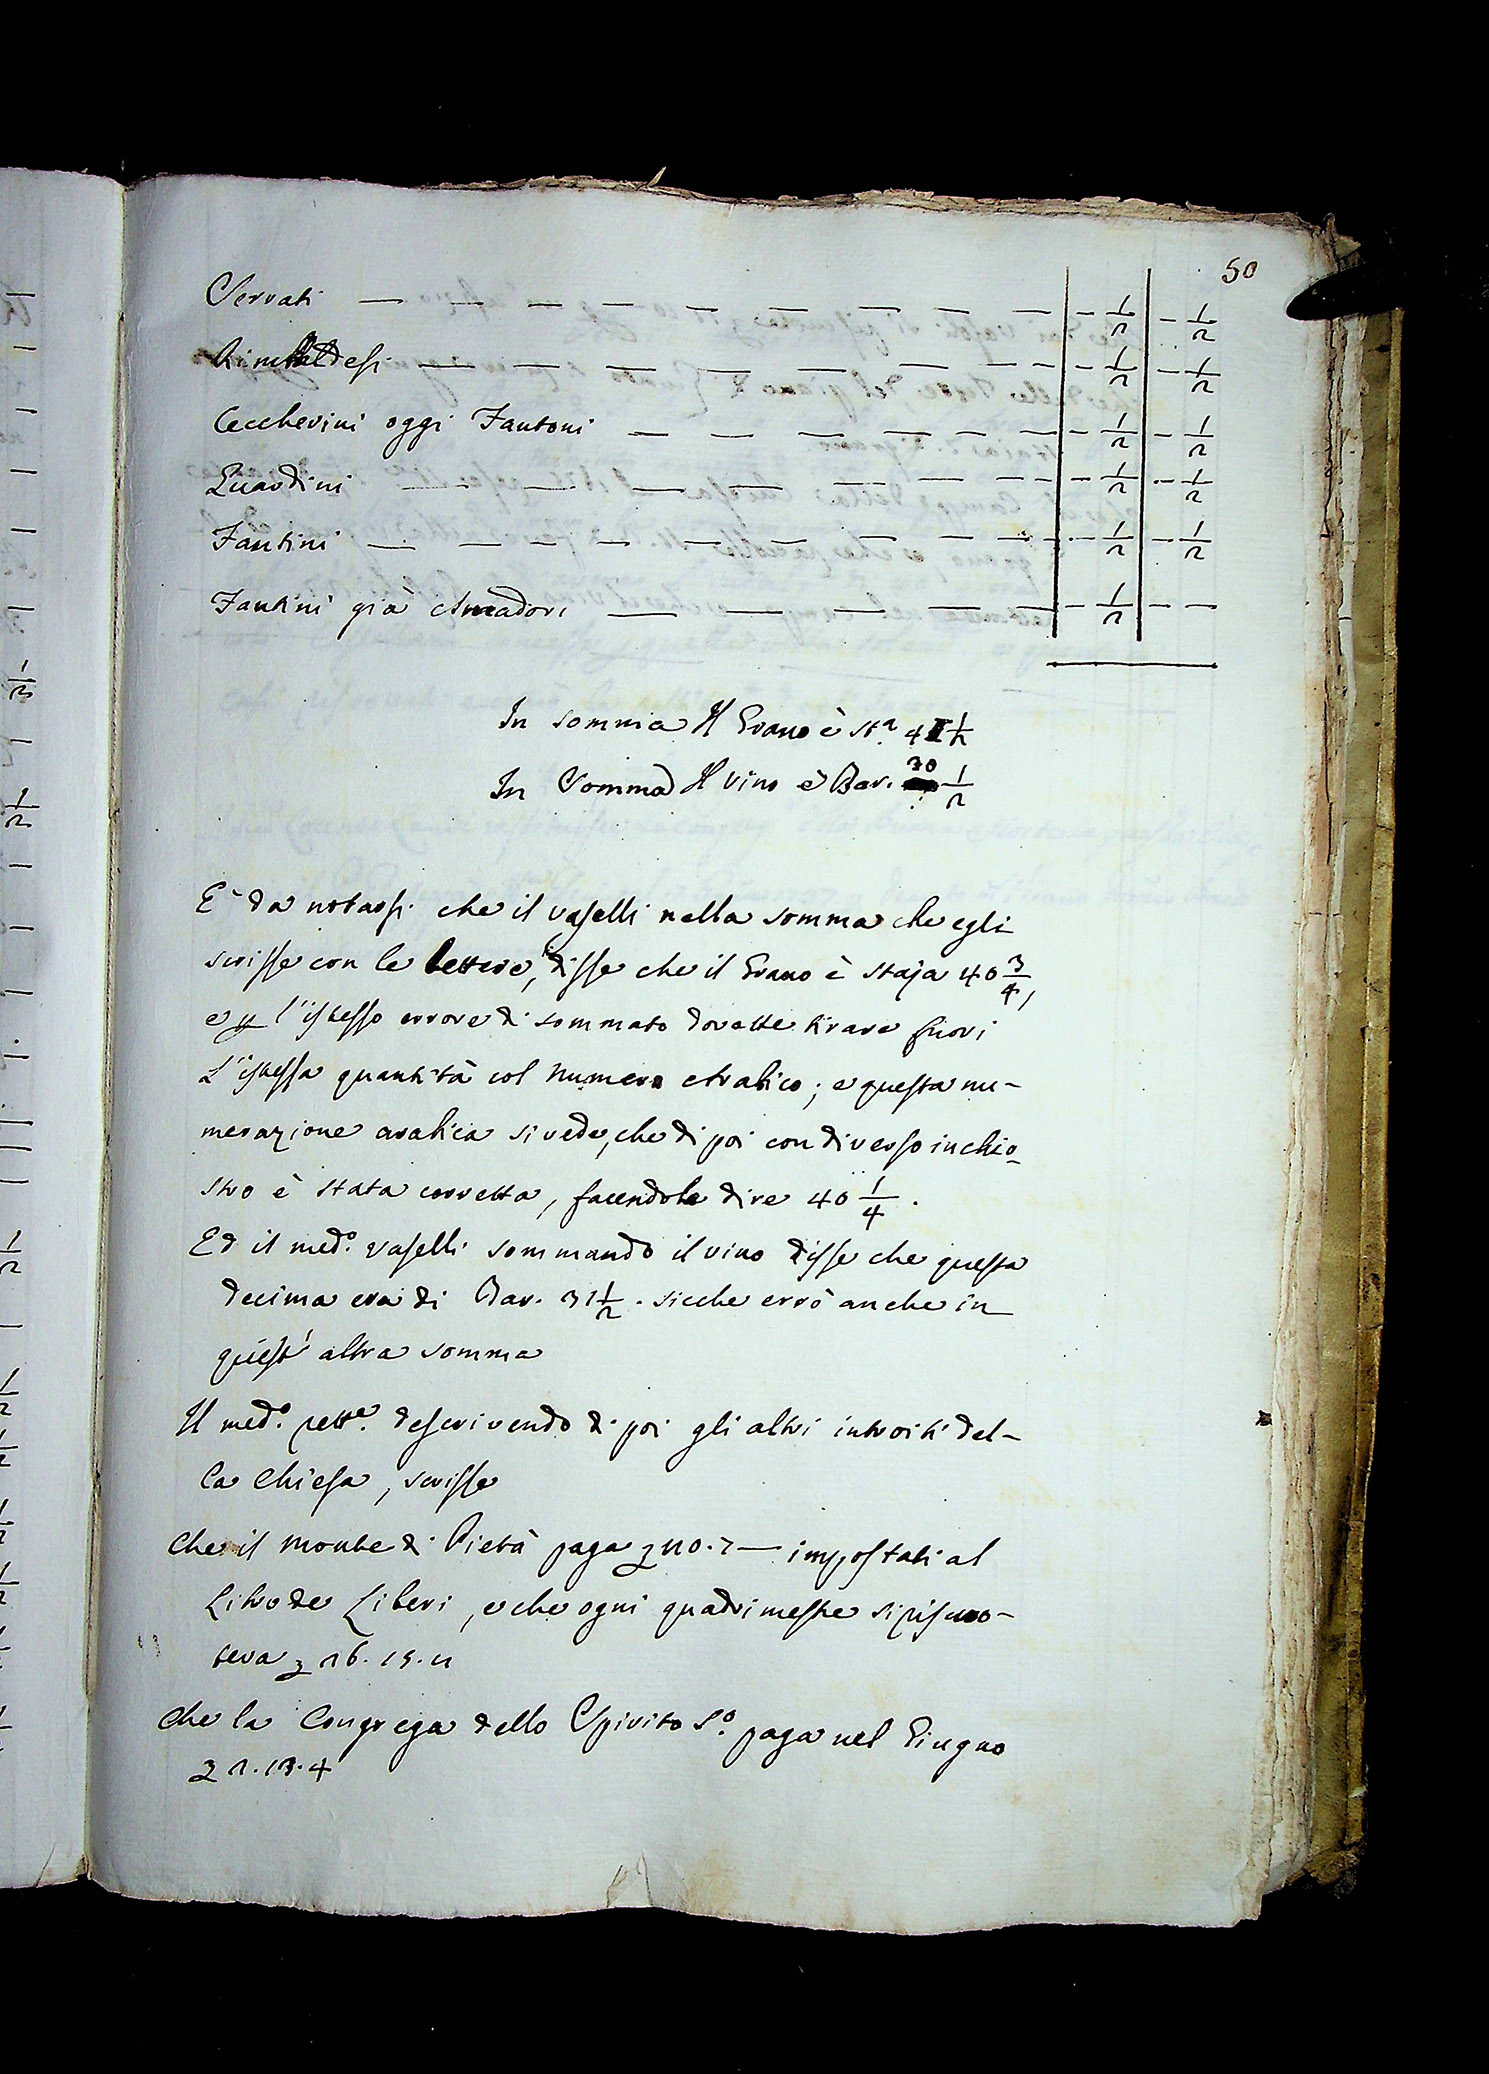 50
Serrati — — — — — — — — — - 1/2 - 1/2
Rimbaldesi — — — — — — — - 1/2 - 1/2
Ceccherini oggi Fantoni — — — — — - 1/2 - 1/2
Guardini — — — — — — — — - 1/2 - 1/2
Fantini — — — — — — — — — - 1/2 - 1/2
Fantini già Amadori — — — — — - 1/2 - -
In somma Il Grano è Sta. 41 1/2
In Somma Il vino è Bar. 30 1/2
È da notarsi che il Vaselli nella somma che egli
scrisse con le lettere, disse che il Grano è staja 40 3/4,
e p l'istesso errore di sommato dovette tirare fuori
L'istessa quantità col numero Arabico; e questa nu-
merazione arabica si vede, che di poi con diverso inchio-
stro è stata corretta, facendole dire 40 1/4.
Ed il med.o Vaselli sommando il vino disse che questa
decima era di Bar. 31 1/2. sicche errò anche in
quest' altra somma
Il med.o rett.e descrivendo di poi gli altri introiti del-
la Chiesa, scrisse
Che il Monte di Pietà paga 110.7— impostati al
Libro de Liberi, e che ogni quadrimestre si riscuo-
teva 26.15.11
Che la Congrega dello Spirito S.o paga nel Giugno
2.13.4